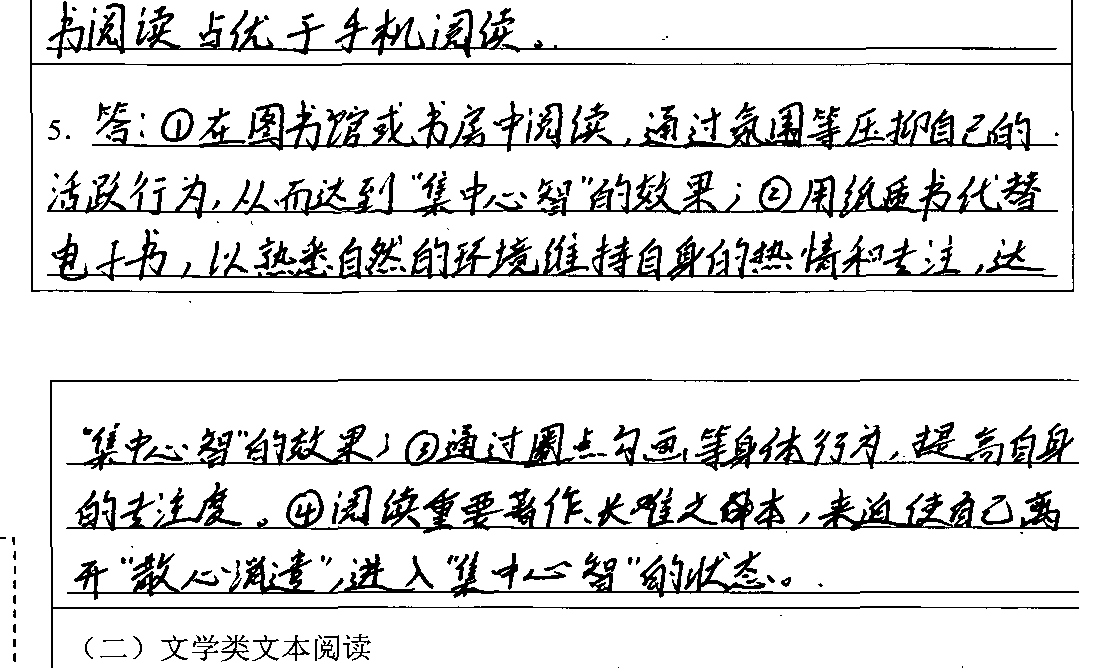 书阅读占优于手机阅读。
5. 答：①在图书馆或书房中阅读，通过氛围等压抑自己的
活跃行为，从而达到“集中心智”的效果；②用纸质书代替
电子书，以熟悉自然的环境维持自身的热情和专注，达
“集中心智”的效果；③通过圈点勾画等身体行为，提高自身
的专注度。④阅读重要著作、长难文碎本，来迫使自己离
开“散心消遣”，进入“集中心智”的状态。
（二）文学类文本阅读